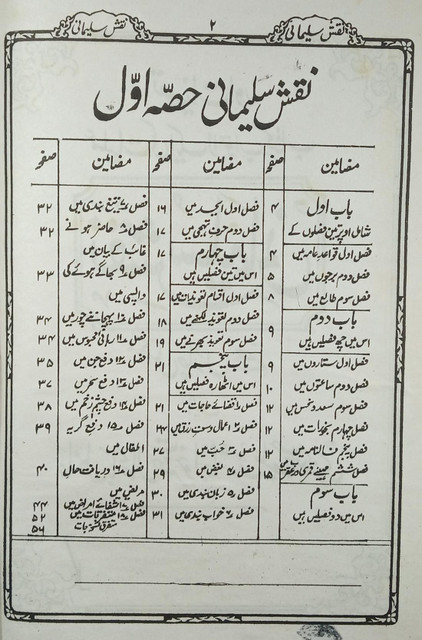 نقش سلیمانی
۲
نقش سلیمانی
نقش سلیمانی حصہ اوّل
مضامین
صفحہ
باب اول
۴
شامل اوپر تین فصلوں کے
فصل اول قواعد عامہ میں
۴
فصل دوم برجوں میں
۵
فصل سوم طالع میں
۸
باب دوم
۹
اس میں چھ فصلیں ہیں
فصل اول ستاروں میں
۹
فصل دوم ساعتوں میں
۱۰
فصل سوم سعد و نحس میں
۱۲
فصل چہارم بخورات میں
۱۲
فصل پنجم فالنامہ میں
۱۲
فصل ششم مہینے قمری
۱۵
باب سوم
اس میں دو فصلیں ہیں
مضامین
صفحہ
فصل اول ابجد میں
۱۶
فصل دوم حروف تہجی میں
۱۷
باب چہارم
۱۷
اس میں تین فصلیں ہیں
فصل اول اقسام تعویذات میں
۱۷
فصل دوم تعویذ لکھنے میں
۱۸
فصل سوم تعویذ بھرنے میں
۱۹
باب پنجم
۲۱
اس میں اٹھارہ فصلیں ہیں
فصل ۱ قضائے حاجات میں
۲۱
فصل ۲ اعمال وسعت رزق میں
۲۲
فصل ۳ حب میں
۲۷
فصل ۴ بغض میں
۲۹
فصل ۵ زبان بندی میں
۳۰
فصل ۶ خواب بندی میں
۳۱
مضامین
صفحہ
فصل ۷ تیغ بندی میں
۳۲
فصل ۸ حاضر ہونے
۳۲
غائب کے بیان میں
فصل ۹ بھاگے ہوئے کی
۳۳
واپسی میں
فصل ۱۰ پہچاننے چور میں
۳۴
فصل ۱۱ رہائی محبوس میں
۳۴
فصل ۱۲ دفع جن میں
۳۵
فصل ۱۳ دفع سحر میں
۳۷
فصل ۱۴ دفع چشم زخم میں
۳۸
فصل ۱۵ دفع گریہ
۳۹
اطفال میں
فصل ۱۶ دریافت حال
۴۰
مریض میں
فصل ۱۷ شفائے امراض میں
۴۴
فصل ۱۸ متفرقات میں
۵۲
متفرق
۵۶